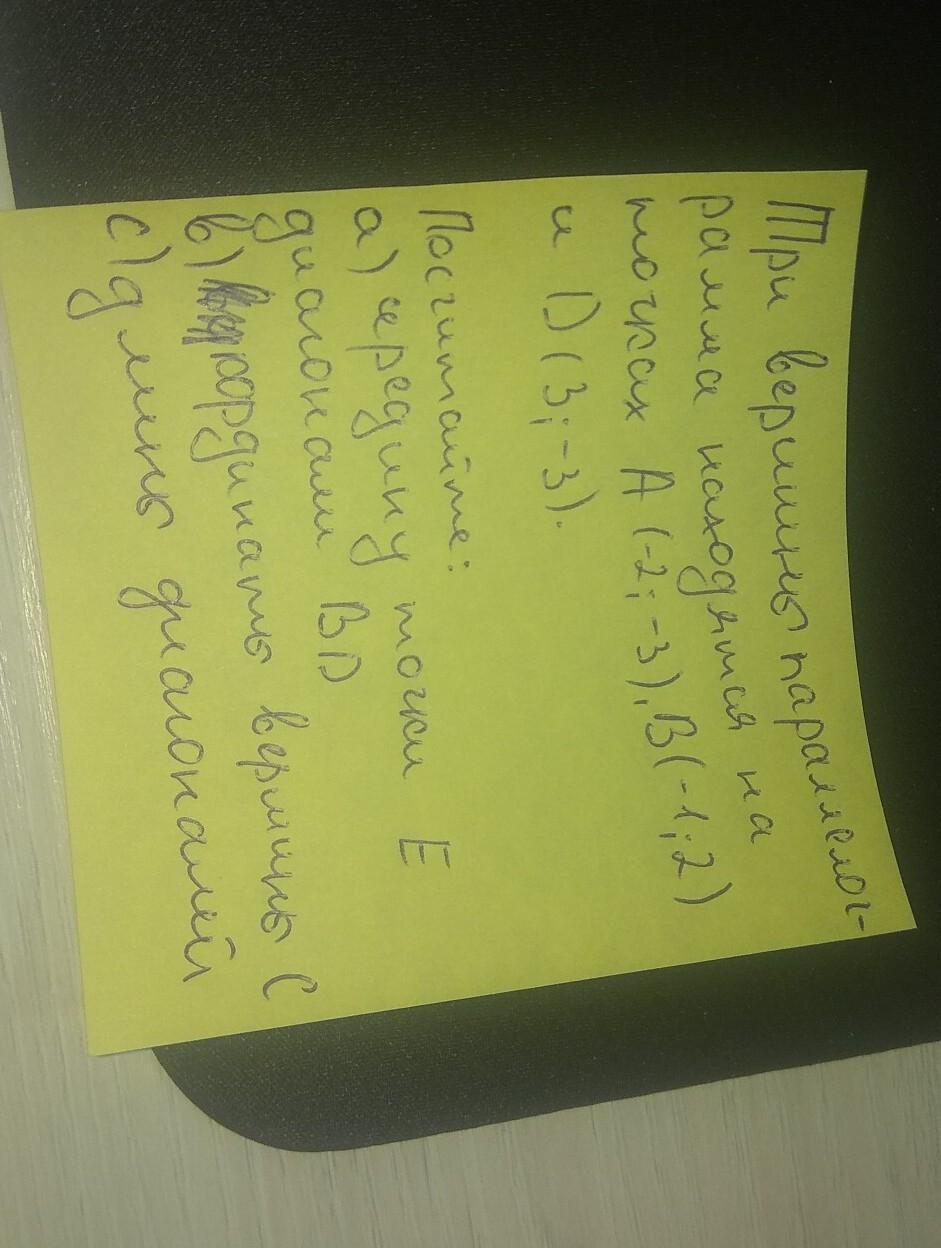 Три вершины параллелог-
рамма находятся на
точках A (-2; -3), B(-1; 2)
и D (3; -3).
Посчитайте:
a) середину точки E
диагонали BD
в) кординаты вершины C
c) длины диагоналей